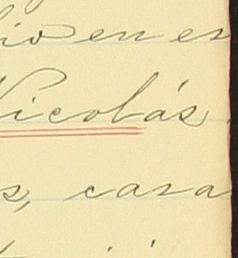 io en es
Nicolás.
s, casa